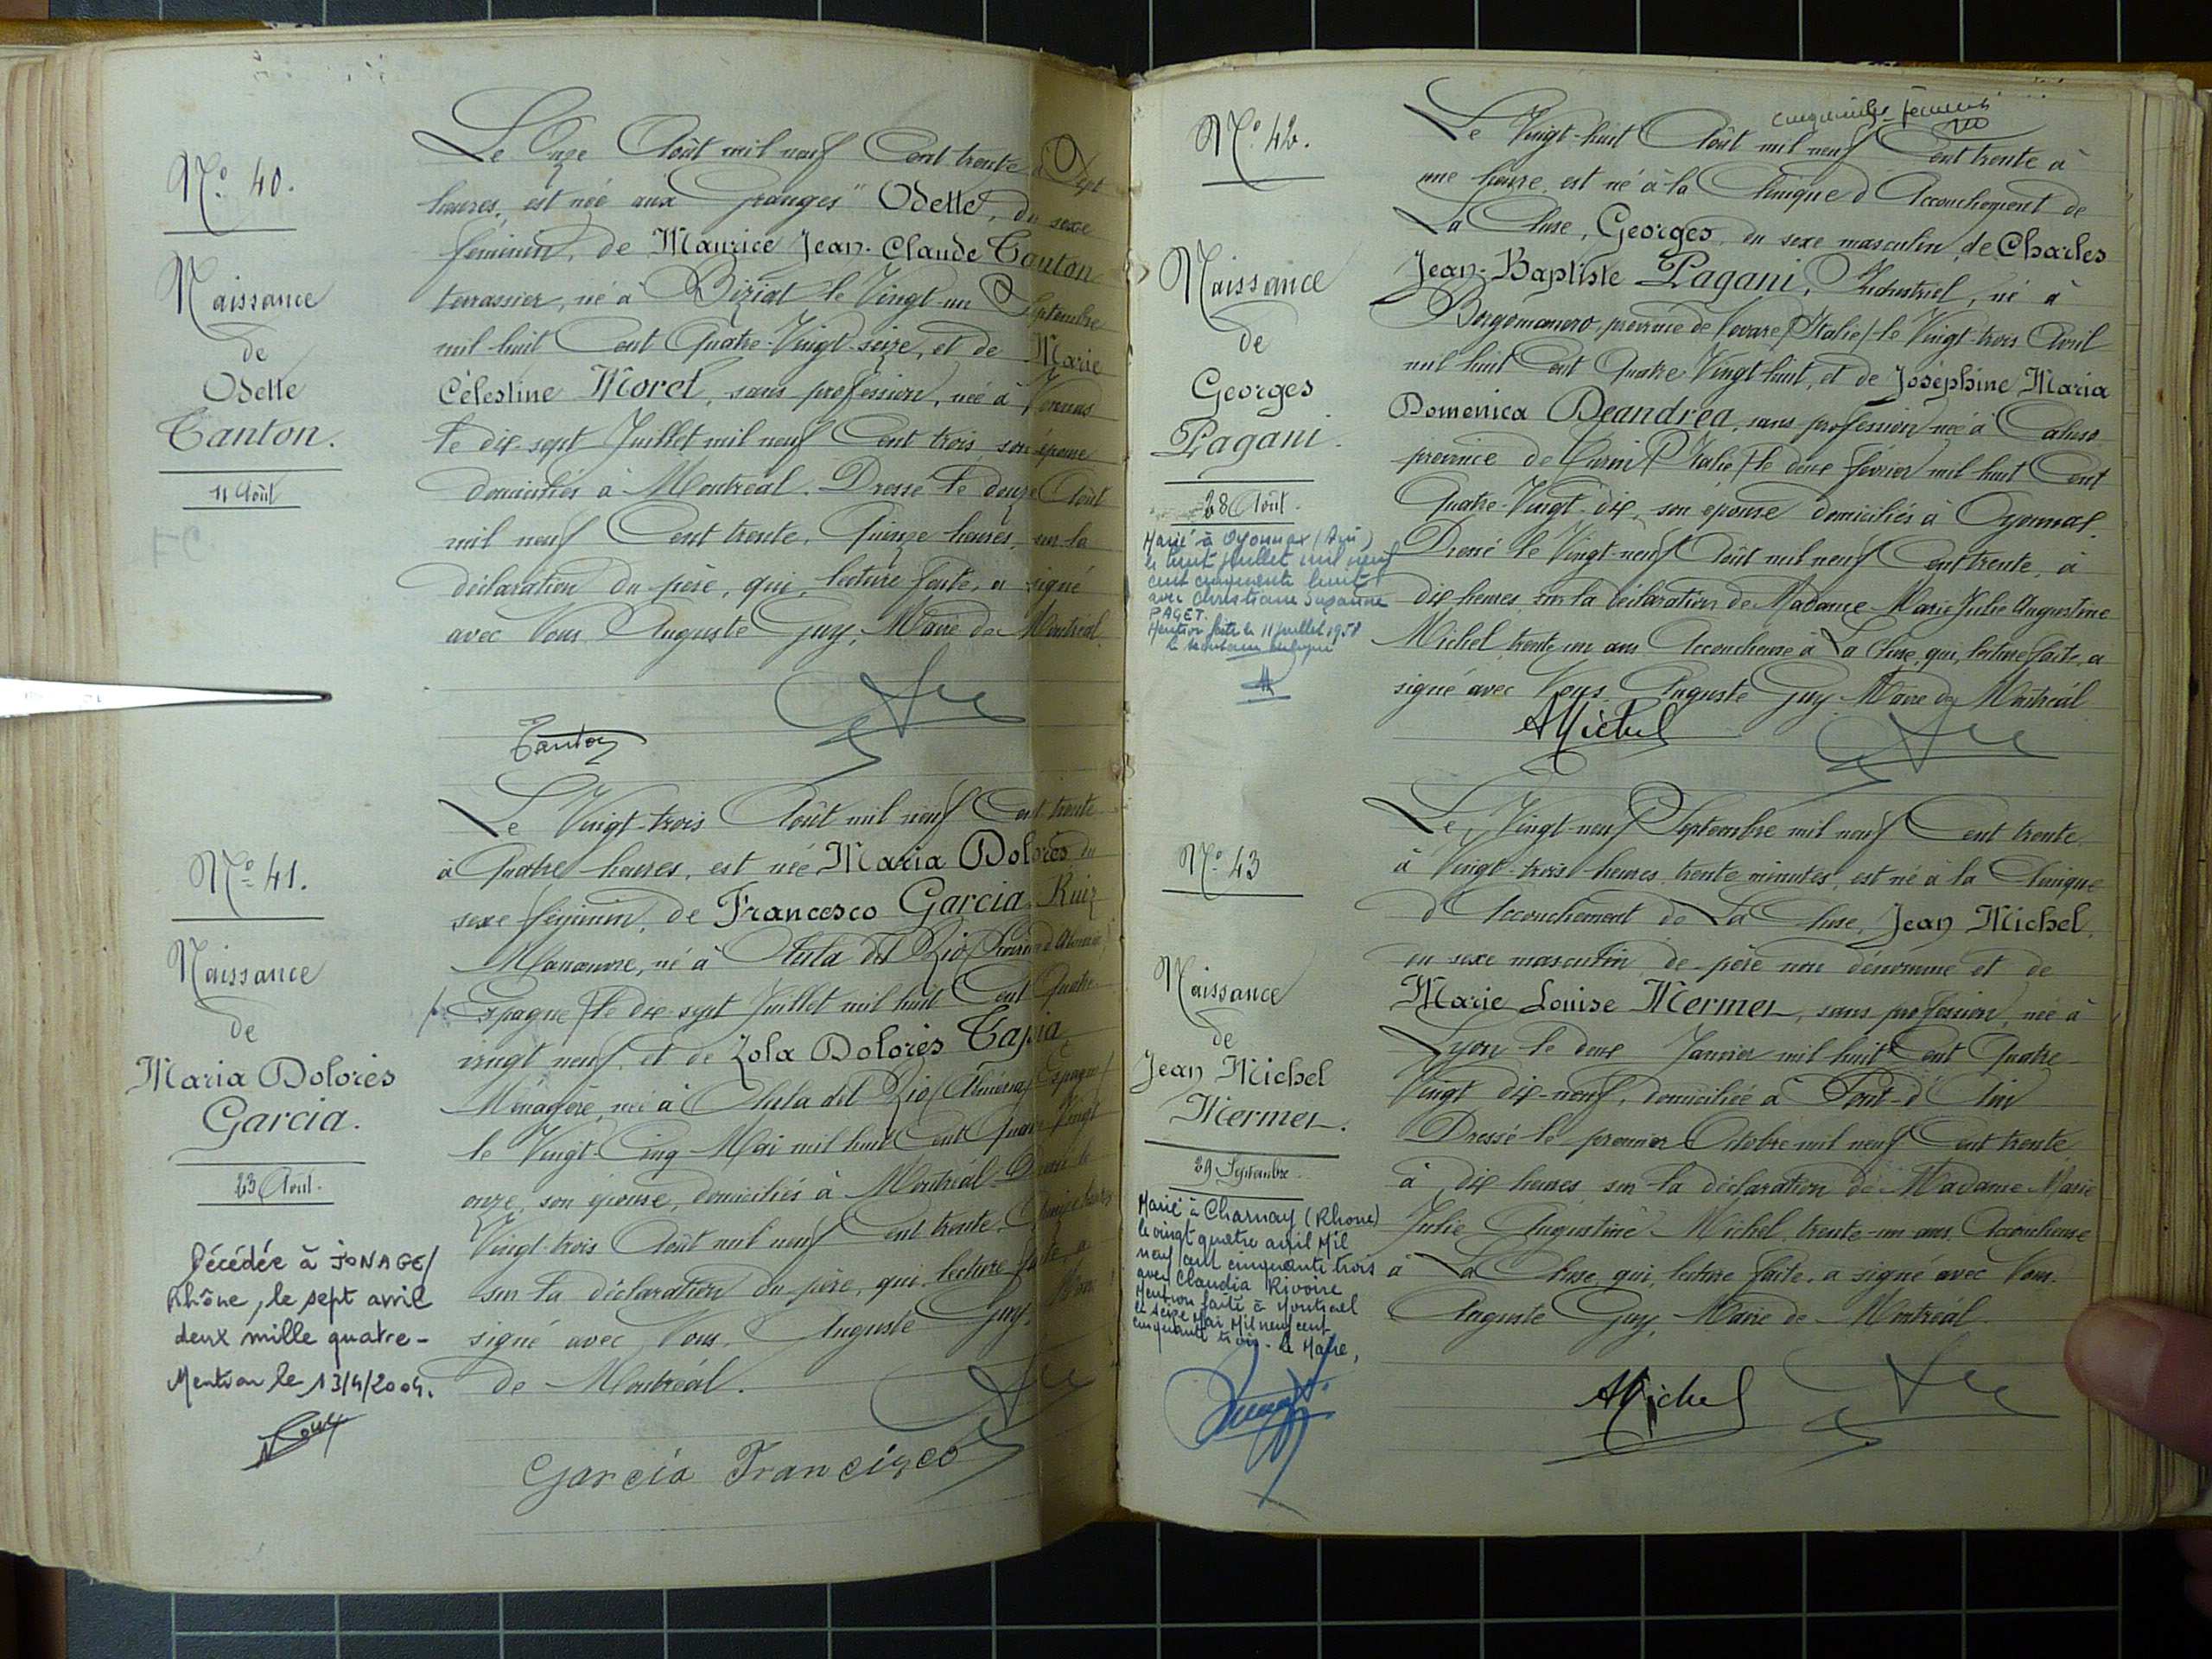 N° 40.
Naissance
de
Odette
Tanton.
11 Août
FC
Le Onze Août mil neuf Cent trente à Sept
heures, est née aux "Granges" Odette, du sexe
féminin, de Maurice Jean-Claude Tanton
terrassier, né à Biziat le Vingt-un Septembre
mil huit Cent Quatre-Vingt-seize, et de Marie
Célestine Moret, sans profession, née à Vonnas
le dix-sept Juillet mil neuf Cent trois, son épouse
domiciliés à Montréal. Dressé le douze Août
mil neuf Cent trente, Quinze heures, sur la
déclaration du père, qui, lecture faite, a signé
avec Nous, Auguste Guy, Maire de Montréal.
Tanton
N° 41.
Naissance
de
Maria Dolorès
Garcia.
23 Août.
Décédée à JONAGE/
Rhône, le sept avril
deux mille quatre-
Mention le 13/4/2004.
Le Vingt-trois Août mil neuf Cent trente
à Quatre heures, est née Maria Dolorès du
sexe féminin, de Francesco Garcia Ruiz
Manœuvre, né à Olula del Rio
Espagne/ le dix-sept Juillet mil huit Cent Quatre-
vingt neuf, et de Lola Dolorès Tapia,
Ménagère, née à Olula del Rio/ Alméria/ Espagne/
le Vingt-Cinq Mai mil huit Cent Quatre Vingt
onze, son épouse, domiciliés à Montréal. Dressé le
Vingt-trois Août mil neuf Cent trente, Quinze heures
sur la déclaration du père, qui, lecture faite a
signé avec Nous, Auguste Guy, Maire
de Montréal.
Garcia Francisco
N° 42.
Naissance
de
Georges
Pagani.
28 Août.
Marié à Oyonnax (Ain)
le huit juillet mil neuf
cent cinquante huit
avec Christiane Suzanne
PAGET.
Mention faite le 11 juillet 1958
Le Vingt-huit Août mil neuf Cent trente à
une heure, est né à la Clinique d'Accouchement de
La Cluse, Georges, du sexe masculin, de Charles
Jean-Baptiste Pagani, Industriel, né à
Borgomanero, province de Novare/Italie/ le Vingt-trois Avril
mil huit Cent Quatre Vingt huit, et de Joséphine Maria
Domenica Deandréa, sans profession née à Caluso
province de Turin/Italie/ le deux février mil huit Cent
Quatre-Vingt-dix, son épouse domiciliés à Oyonnax.
Dressé le Vingt-neuf Août mil neuf Cent trente, à
dix heures, sur la déclaration de Madame Marie Julie Augustine
Michel, trente un ans Accoucheuse à La Cluse, qui, lecture faite, a
signé avec Nous Auguste Guy Maire de Montréal
AMichel
N° 43
Naissance
de
Jean Michel
Mermet.
29 Septembre.
Marié à Charnay (Rhône)
le vingt quatre avril Mil
neuf cent cinquante trois
avec Claudia Rivoire
Mention faite à Montréal
le seize Mai Mil neuf cent
cinquante trois - le Maire,
Le Vingt-neuf Septembre mil neuf Cent trente
à Vingt-trois heures trente minutes, est né à la Clinique
d'Accouchement de La Cluse, Jean Michel,
du sexe masculin, de père non dénommé et de
Marie Louise Mermet, sans profession, née à
Lyon le deux Janvier mil huit Cent Quatre-
Vingt dix-neuf, domiciliée à Pont-d'Ain
Dressé le premier Octobre mil neuf Cent trente
à dix heures, sur la déclaration de Madame Marie
Julie Augustine Michel, trente-un ans, Accoucheuse
à La Cluse, qui, lecture faite, a signé avec Nous.
Auguste Guy, Maire de Montréal.
AMichel